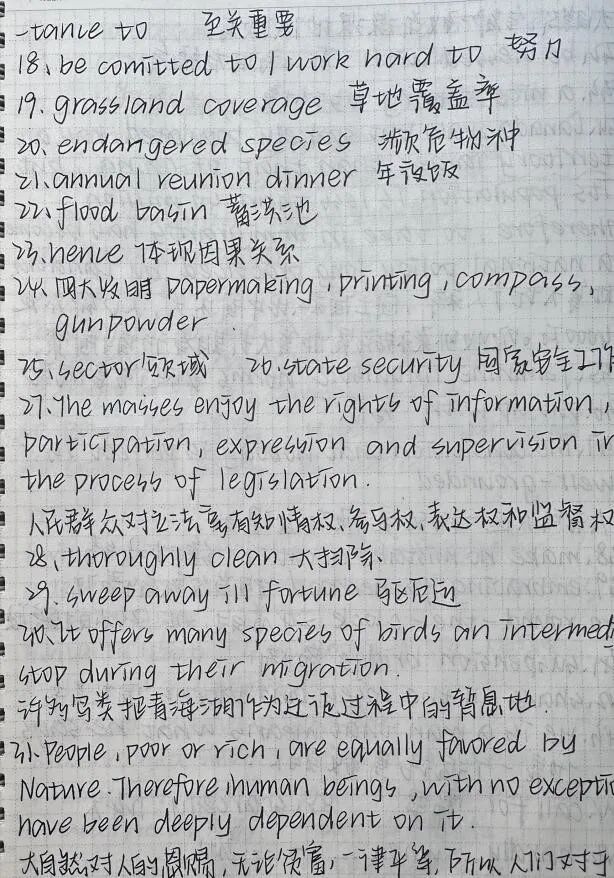 -tance to 至关重要
18. be comitted to / work hard to 努力
19. grassland coverage 草地覆盖率
20. endangered species 濒危物种
21. annual reunion dinner 年夜饭
22. flood basin 蓄洪池
23. hence 体现因果关系
24. 四大发明 papermaking, printing, compass,
gunpowder
25. sector 领域 26. state security 国家安全工作
27. The masses enjoy the rights of information,
participation, expression and supervision in
the process of legislation.
人民群众对立法享有知情权、参与权、表达权和监督权
28. thoroughly clean 大扫除、
29. sweep away ill fortune 驱厄运
30. It offers many species of birds an intermedi
stop during their migration.
许多鸟类把青海湖作为迁徙过程中的暂息地
31. People, poor or rich, are equally favored by
Nature. Therefore, human beings, with no exceptio
have been deeply dependent on it.
大自然对人的恩赐,无论贫富,一律平等,所以人们对于